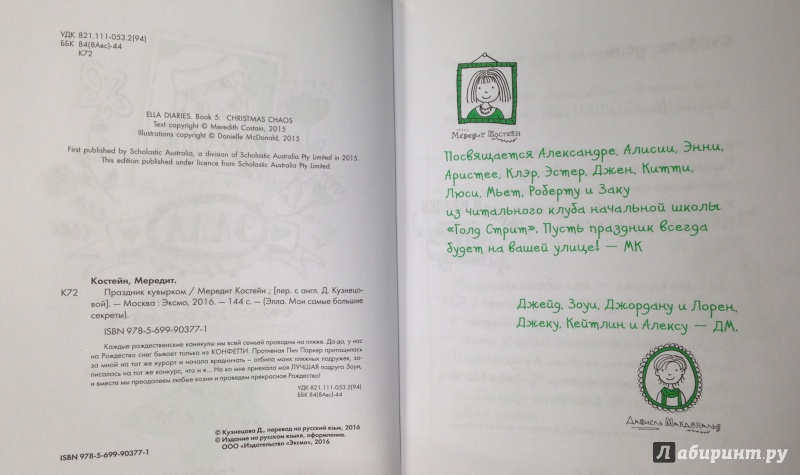 УДК 821.111-053.2(94)
ББК 84(8Авс)-44
К72
ELLA DIARIES. Book 5: CHRISTMAS CHAOS
Text copyright © Meredith Costain, 2015
Illustrations copyright © Danielle McDonald, 2015
First published by Scholastic Australia, a division of Scholastic Australia Pty Limited in 2015.
This edition published under licence from Scholastic Australia Pty Limited.
Костейн, Мередит.
К72 Праздник кувырком / Мередит Костейн ; [пер. с англ. Д. Кузнецо-
вой]. — Москва : Эксмо, 2016. — 144 с. — (Элла. Мои самые большие
секреты).
ISBN 978-5-699-90377-1
Каждые рождественские каникулы мы всей семьей проводим на пляже. Да-да, у нас
на Рождество снег бывает только из КОНФЕТТИ. Противная Пич Паркер притащилась
за мной на тот же курорт и начала вредничать — отбила моих пляжных подружек, за-
писалась на тот же конкурс, что и я... Но ко мне приехала моя ЛУЧШАЯ подруга Зоуи,
и вместе мы преодолеем любые козни и проведем прекрасное Рождество!
УДК 821.111-053.2(94)
ББК 84(8Авс)-44
© Кузнецова Д., перевод на русский язык, 2016
© Издание на русском языке, оформление.
ООО «Издательство «Эксмо», 2016
ISBN 978-5-699-90377-1
Мередит Костейн
Посвящается Александре, Алисии, Энни,
Аристее, Клэр, Эстер, Джен, Китти,
Люси, Мьет, Роберту и Заку
из читального клуба начальной школы
«Голд Стрит». Пусть праздник всегда
будет на вашей улице! — МК
Джейд, Зоуи, Джордану и Лорен,
Джеку, Кейтлин и Алексу — ДМ.
Даниель Макдональд
Лабиринт.ру